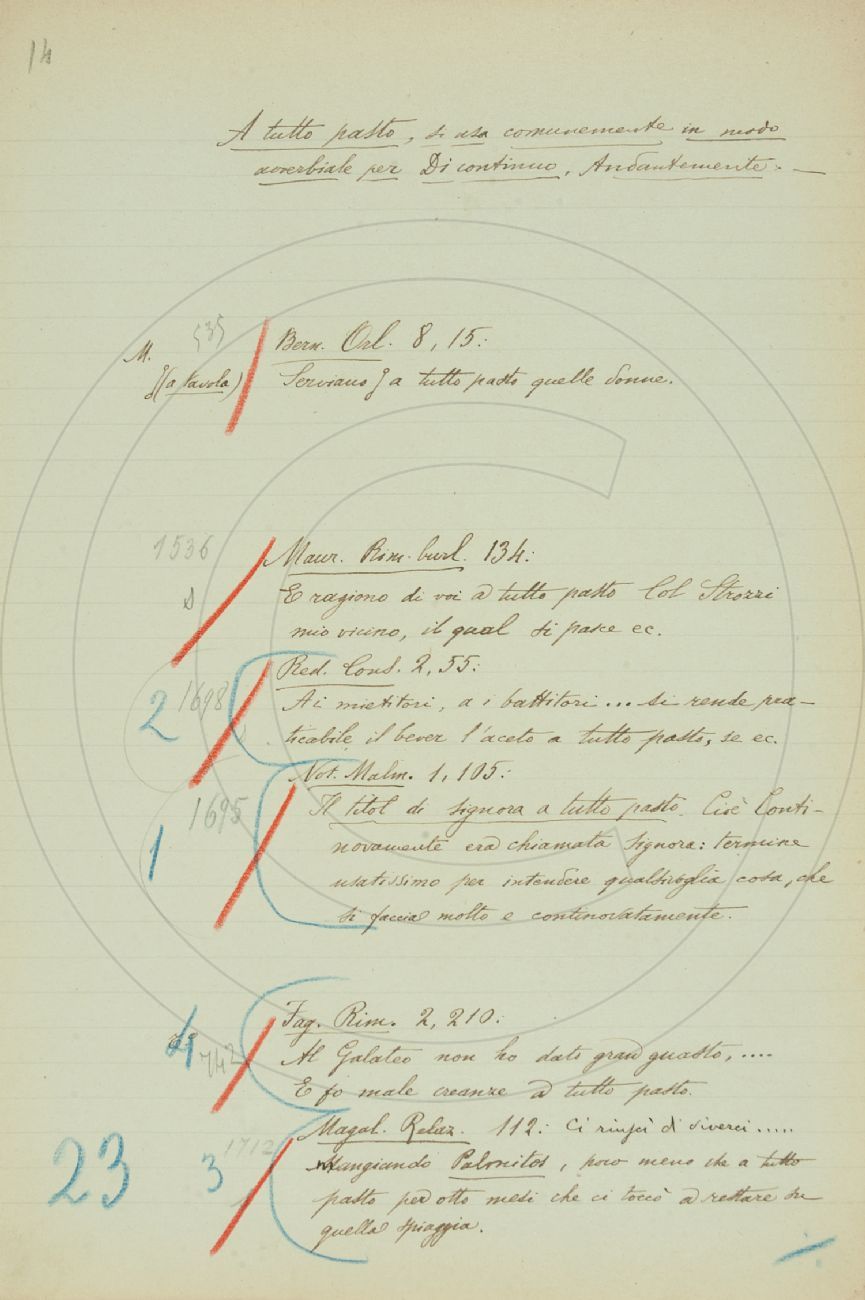 14
A tutto pasto, si usa comunemente in modo
avverbiale per Di continuo, Andantemente. —
M. 535 Bern. Orl. 8, 15:
}(a tavola) Serviano } a tutto pasto quelle donne.
1536 Maur. Rim. burl. 134:
E ragiono di voi a tutto pasto Col Strozzi
mio vicino, il qual si pasce ec.
Red. Cons. 2, 55:
2 1698 Ai mietitori, a i battitori... si rende pra-
ticabile il bever l'aceto a tutto pasto, se ec.
Not. Malm. 1, 105:
1695 Il titol di signora a tutto pasto. Cioè Conti-
1 novamente era chiamata Signora: termine
usatissimo per intendere qualsivoglia cosa, che
si faccia molto e continovatamente.
Fag. Rim. 2, 210:
4 742 Al Galateo non ho dato gran guasto, ....
E fo male creanze a tutto pasto.
Magal. Relaz. 112: Ci riuscì di viverci.....
23 3 1712 Mangiando Palmitos, poco meno che a tutto
pasto per otto mesi che ci toccò a restare su
quella spiaggia.